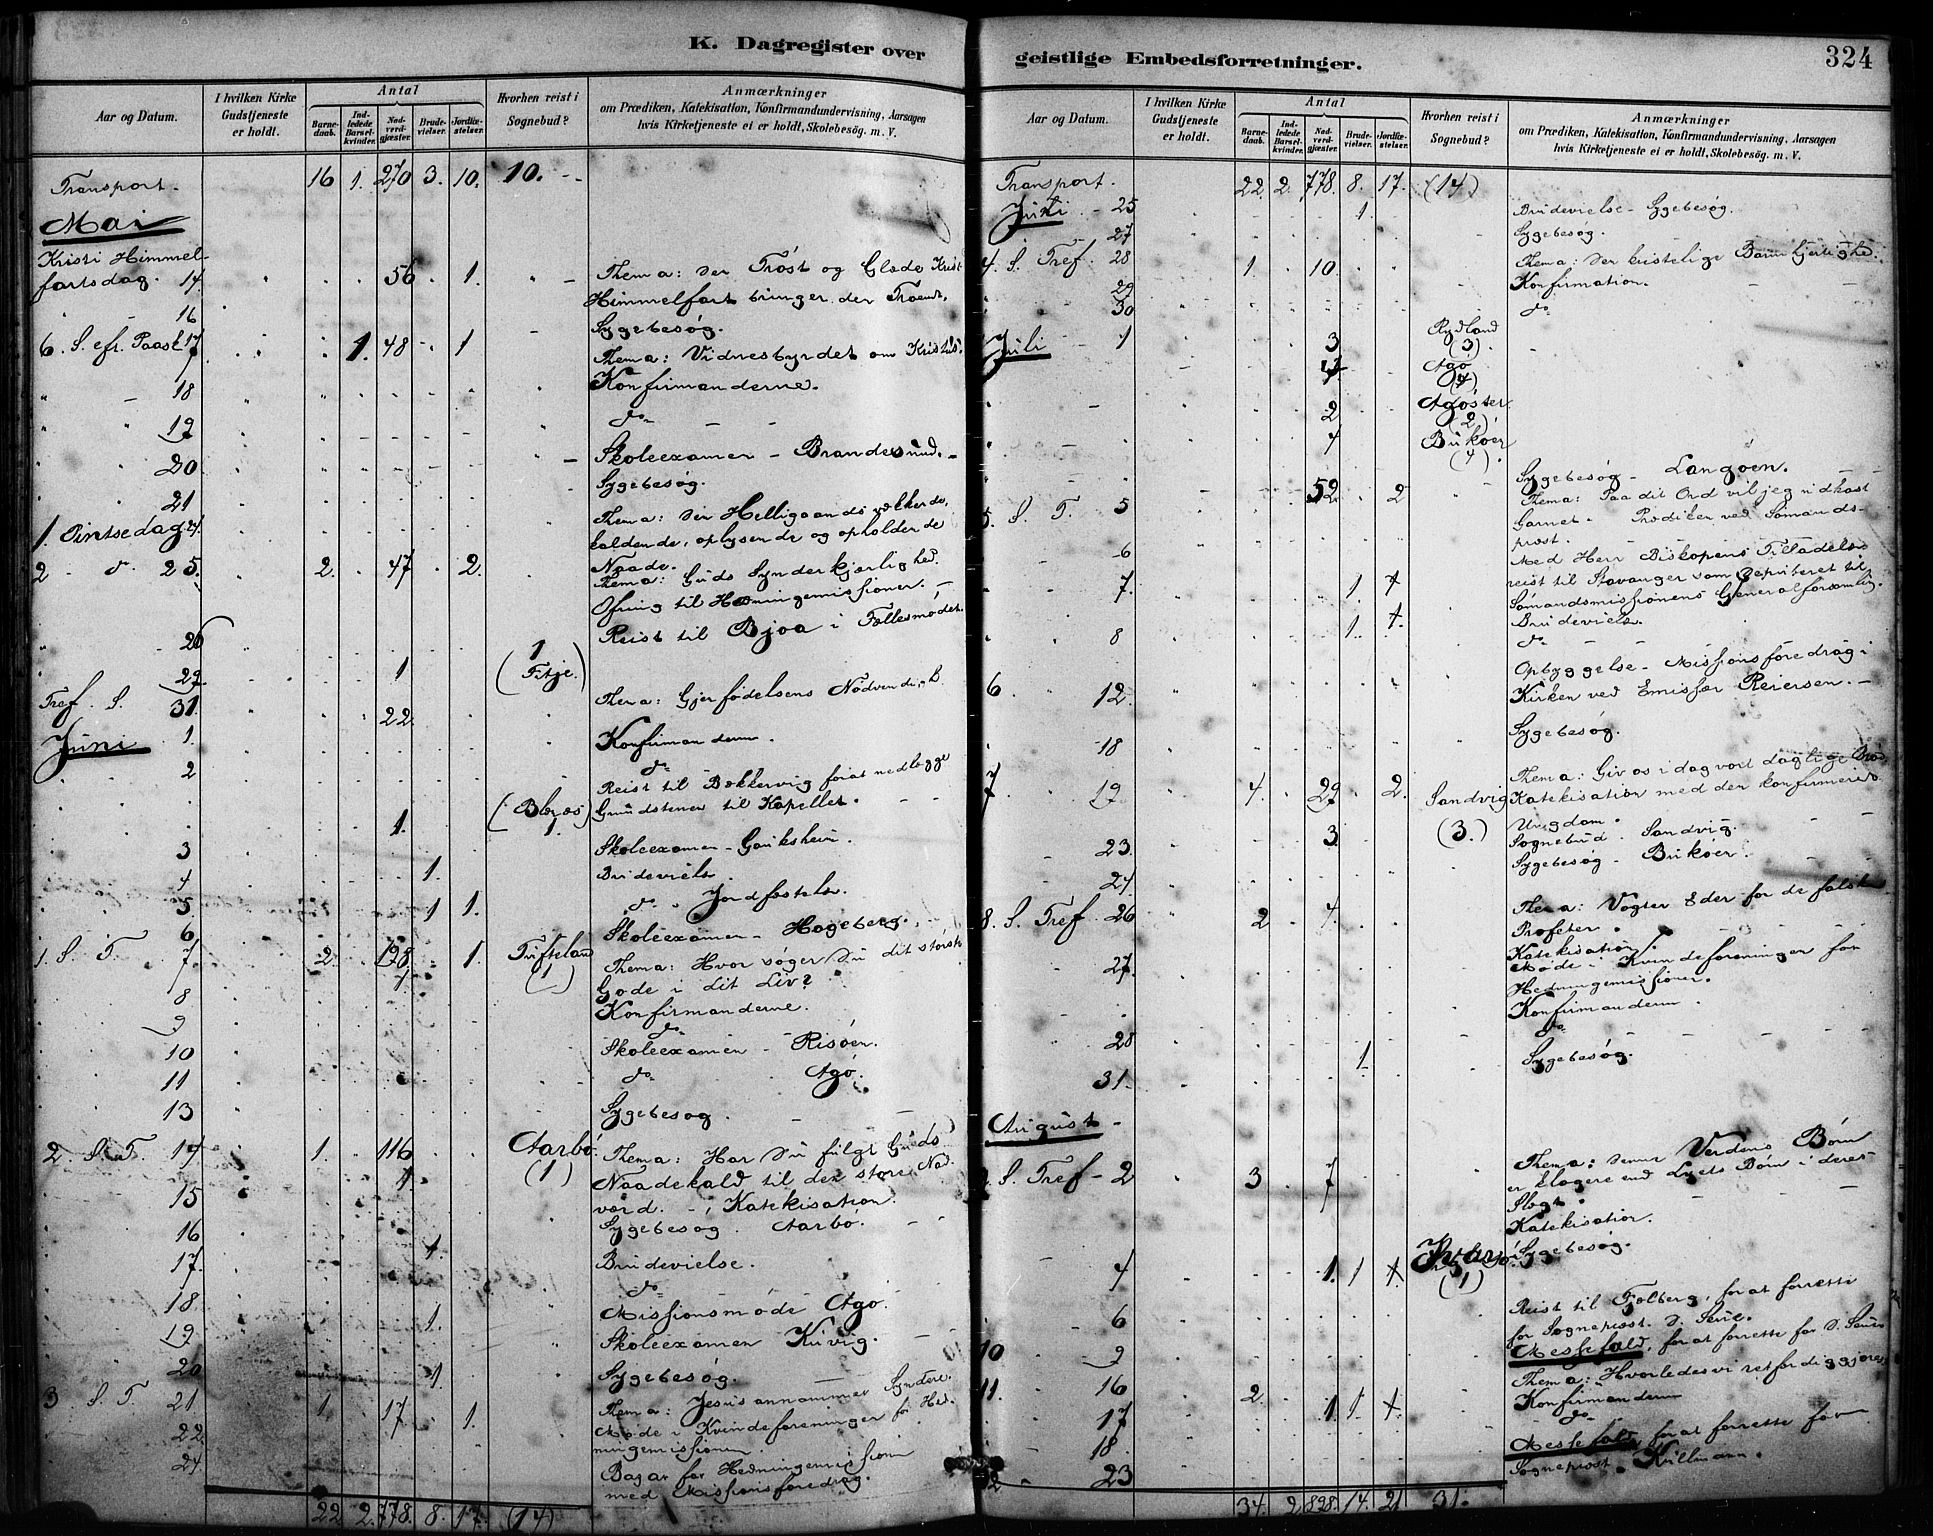 K. Dagregister over
Aar og Datum.
I hvilken Kirke Gudstjeneste er holdt.
Antal
Barnedaab.
Indledede Barselkvinder.
Nadverdgjæster.
Brudevielser.
Jordfæstelser.
Hvorhen reist i Sognebud?
Anmærkninger
om Prædiken, Katekisation, Konfirmandundervisning, Aarsagen
hvis Kirketjeneste ei er holdt, Skolebesøg. m. V.
Transport. 16 1. 270 3. 10. 10.
Mai
Kristi Himmel-
fartsdag. 14. 56 1. Thema: Der Trøst og Glæde Krist
Himmelfart bringer der Troende.
16 Sygebesøg.
6. S. efr. Paask 17 1. 48 1 Thema: Vidnesbyrdet om Kristus.
18 Konfirmanderne.
19 do
20 Skoleexamen - Brandesund.
21 Sygebesøg.
1. Pintsedag 24. Thema: Den Helligaands vækkende,
kaldende, oplysende og opholdende
Naade.
2 - d. 25. 2. 47 2. Thema: Guds Synderkjærlighed.
Ofring til Hedningemissionen.
26 Reist til Bjoa i Fællesmødet.
29. 1 1 (Fitje.)
Tref. S. 31. 22. Thema: Gjenfødelsens Nødvendigh.
Juni 1. Konfirmanderne.
2 do
Reist til Bækkervig forat nedlægge
1. 1. Grundstenen til Kapellet.
3 Skoleexamen - Gauksheim
4 1. Brudevielse.
5. 1 1. do. Jordfæstelse.
6 Skoleexamen - Hageberg.
1. S. T. 7. 2. 198 1. Tufteland (1) Thema: Hvor søger Du dit største
Gode i dit Liv?
8 Konfirmanderne.
9 do
10 Skoleexamen - Risøen.
11 do Agø.
13 Sygebesøg.
2 S. T. 14 1. 116 Aarbø. (1) Thema: Har Du fulgt Guds
Naadekald til den store Nad-
verd. - Katekisation.
15 1.
16 Sygebesøg. Aarbø.
17. 1. Brudevielse.
do
18. 1. Missionsmøde Agø.
19 Skoleexamen Kuvig.
20 1. Sygebesøg.
3 S. T. 21 1. 17. 1. Thema: Jesus annammer Syndere.
22 Møde i Kvindeforeninger for Hed-
ningemissionen.
24 Bazar for Hedningemissionen
med Missionsforedrag.
22 2. 778. 8. 17. (14)
geistlige Embedsforretninger.
324
Aar og Datum.
I hvilken Kirke Gudstjeneste er holdt.
Antal
Barnedaab.
Indledede Barselkvinder.
Nadverdgjæster.
Brudevielser.
Jordfæstelser.
Hvorhen reist i Sognebud?
Anmærkninger
om Prædiken, Katekisation, Konfirmandundervisning, Aarsagen
hvis Kirketjeneste ei er holdt, Skolebesøg. m. V.
Transport. 22. 2. 778. 8. 17. (14)
Juni - 25 1. Brudevielse - Sygebesøg.
27 Sygebesøg.
4. S. Tref. 28 1. 10. Thema: Den kristelige Barmhjertighed.
29 Konfirmation.
30 do
Juli - 1 3 Rydland (3)
Agø (4)
2 Agøster (2)
4 Bukøer (4)
Sygebesøg - Langøen.
5. S. T. 5 52. 2 Thema: Paa dit Ord vil jeg udkaste
Garnet. Prædiken ved Sømands-
præst.
6 Med Herr Biskopens Tilladelse
reist til Stavanger som Deputeret til
Sømandsmissionens Generalforsamling.
7. 1 Brudevielse.
8 1 do
6 12. Opbyggelse - Missionsforedrag i
Kirken ved Emissær Reiersen.
18 Sygebesøg.
7 19 4. 29 2. Thema: Giv os i dag vort daglige Brød.
Katekisation med den konfirmerede
Ungdom.
23. 3. Sandvig (3.) Sognebud. Sandvig.
24 Sygebesøg - Bukøer.
8. S. Tref. 26 2 4. Thema: Vogter Eder for de falske
Profeter.
Katekisation.
27. Møde i Kvindeforeninger for
Hedningemissionen.
Konfirmanderne
28 do
31. 1. Sygebesøg.
August
9. S. Tref - 2 3 7 Thema: Denne Verdens Børn
er klogere end Lysets Børn i deres
Slægt.
Katekisation.
4 1. 1 (1) Sygebesøg.
6 Reist til Fjelberg, for at forrette
for Sogneprest D. Serie.
10 9 Messefald, for at forrette for D. Serie
11. 16 2. Thema: Hvorledes vi retfærdiggjøres
17 1. 1. Konfirmanderne
18. do
12 23 Messefald, for at forrette for
Sogneprest Killmann.
34. 2 898. 14. 21 31.